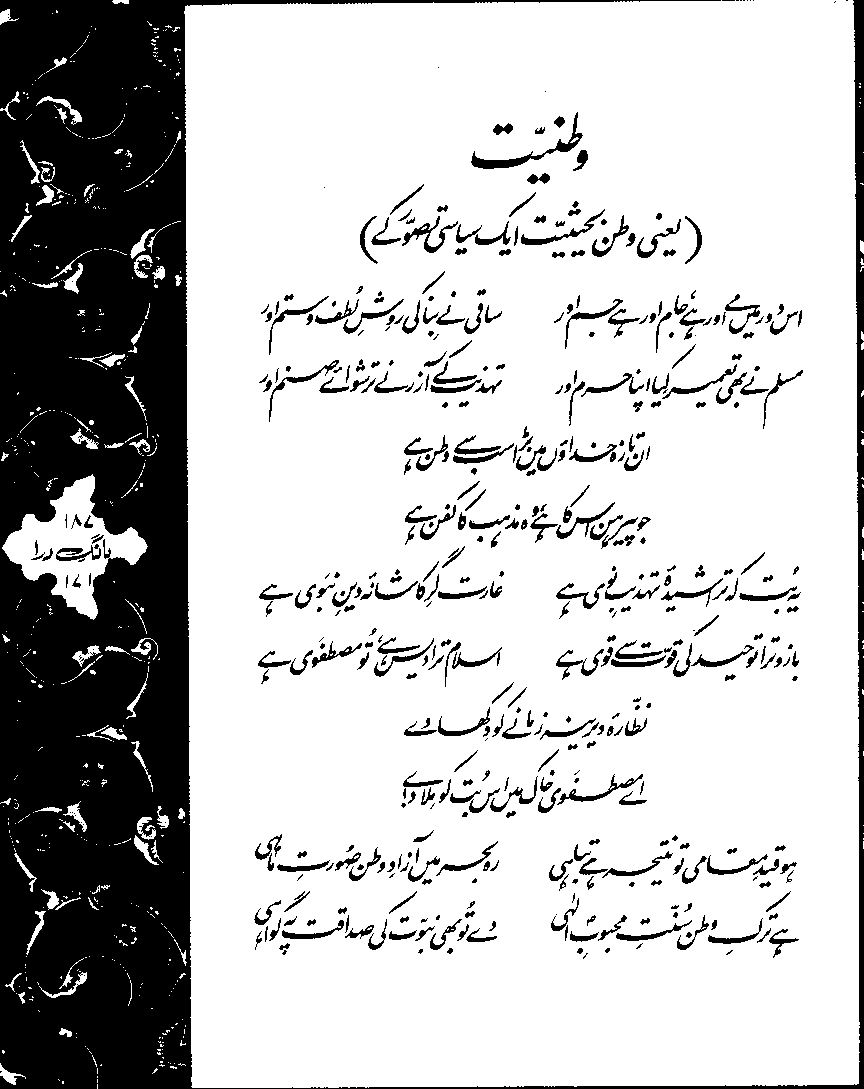 وطنیّت
(یعنی وطن بحیثیّت ایک سیاسی تصوّر کے)
اس دَور میں مے اور ہے، جام اور ہے جم اور ساقی نے بِنا کی روِشِ لُطف و ستم اور
مسلم نے بھی تعمیر کیا اپنا حرم اور تہذیب کے آزر نے ترشوائے صنم اور
ان تازہ خداؤں میں بڑا سب سے وطن ہے
جو پیرہن اس کا ہے، وہ مذہب کا کفن ہے
یہ بُت کہ تراشیدۂ تہذیبِ نوی ہے غارت گرِ کاشانۂ دینِ نبَوی ہے
بازو ترا توحید کی قوّت سے قوی ہے اسلام ترا دیس ہے، تُو مصطفوَی ہے
نظّارۂ دیرینہ زمانے کو دِکھا دے
اے مصطفوَی خاک میں اس بُت کو مِلا دے!
ہو قیدِ مقامی تو نتیجہ ہے تباہی رہ بحر میں آزادِ وطن صُورتِ ماہی
ہے ترکِ وطن سُنّتِ محبوبؐ الٰہی دے تُو بھی نبوّت کی صداقت پہ گواہی
۱۸۷
بانگِ درا
۱۷۱